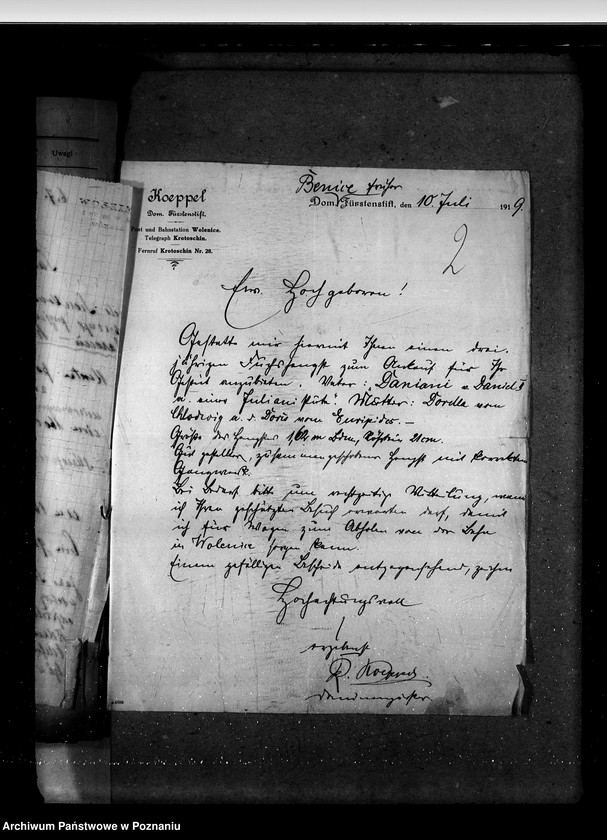 Uwagi
Koeppel
Dom. Fürstenstift.
Post und Bahnstation Wolenice.
Telegraph Krotoschin.
Fernruf Krotoschin Nr. 28.
Benice früher
Dom. Fürstenstift, den 10 Juli 1919.
2
Ew. Hochgeboren!
Gestatte mir hiermit Ihnen einen drei-
jährigen Fuchshengst zum Ankauf für Ihr
Gestüt anzubieten. Vater: Daniani v. Daniel I
a. einer Julianistute! Mutter: Dorella vom
Chlodwig a. d. Doris vom Euripides. –
Größe des Hengstes 1,62 m Bdm, Röhrbein 21 cm.
Gut gestellter, zusammengeschobener Hengst mit korrekten
Gangwerk.
Bei Bedarf bitte um rechtzeitige Mitteilung, wann
ich Ihren geschätzten Besuch erwarten darf, damit
ich für Wagen zum Abholen von der Bahn
in Wolenice sorgen kann.
Einem gefälligen Bescheide entgegensehend, zeichne
Hochachtungsvoll
ergebenst
Koeppel
Archiwum Państwowe w Poznaniu